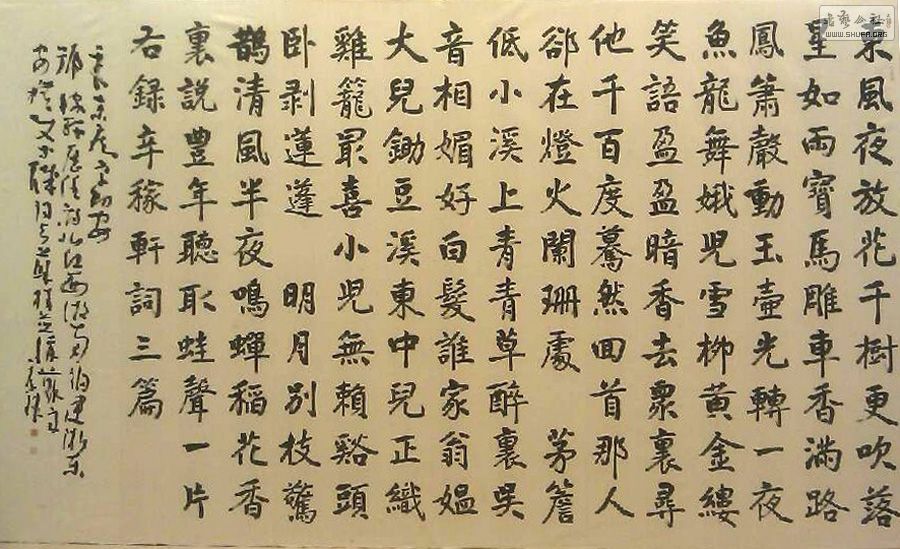 東風夜放花千樹更吹落
星如雨寶馬雕車香滿路
鳳簫聲動玉壺光轉一夜
魚龍舞娥兒雪柳黃金縷
笑語盈盈暗香去衆裏尋
他千百度驀然回首那人
卻在燈火闌珊處 茅簷
低小溪上青青草醉裏吳
音相媚好白髮誰家翁媼
大兒鋤豆溪東中兒正織
雞籠最喜小兒無賴谿頭
卧剥蓮蓬 明月別枝驚
鵲清風半夜鳴蟬稻花香
裏說豐年聽取蛙聲一片
右録辛稼軒詞三篇
WWW.SHUFA.ORG